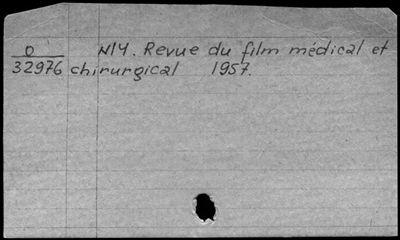 O N14. Revue du film médical et
32976 chirurgical 1957.